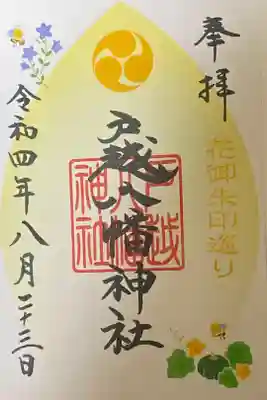 奉拝
花御朱印巡り
戸越八幡神社
戸越
八幡
神社
令和四年八月二十三日